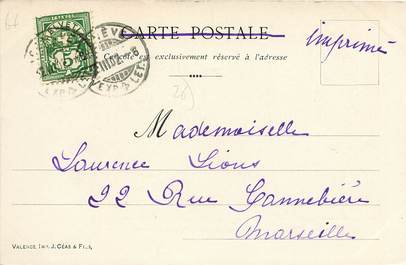 CARTE POSTALE
Ce côté est exclusivement réservé à l'adresse
imprimé
5
26
Mademoiselle
Laurence Lions
22 Rue Cannebière
Marseille
VALENCE IMP. J. CÉAS & FILS,